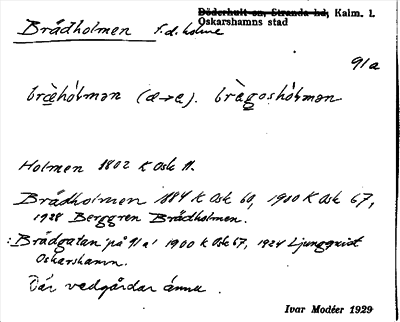 Brådholmen f.d. holme
Döderhult sn, Stranda hd, Kalm. l.
Oskarshamns stad
91a
bræhólmən (æ→a). brågoshólmən
Holmen 1802 K Osk 11.
Brådholmen 1884 K Osk 60, 1900 K Osk 67,
1928 Berggren Brådholmen.
:Brådgatan på 91a 1900 K Osk 67, 1924 Ljungqvist
Oskarshamn.
Där vedgårdar ännu.
Ivar Modéer 1929